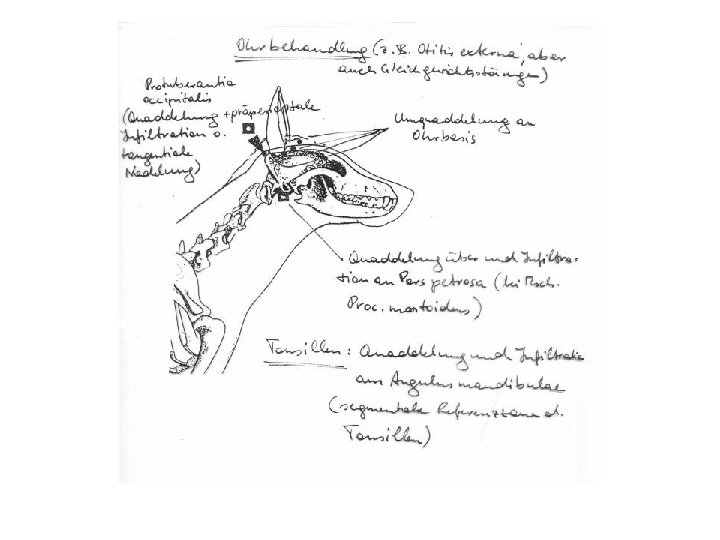 Ohrbehandlung (z.B. Otitis externa, aber
auch Gleichgewichtsstörungen)
Protuberantia
occipitalis
(Quaddelung + präperiostale
Infiltration o.
tangentiale
Nadelung)
Umquaddelung an
Ohrbasis
Quaddelung über und Infiltra-
tion an Pars petrosa (bei Msch.
Proc. mastoideus)
Tonsillen: Quaddelung und Infiltratio
am Angulus mandibulae
(segmentale Referenzzone d.
Tonsillen)